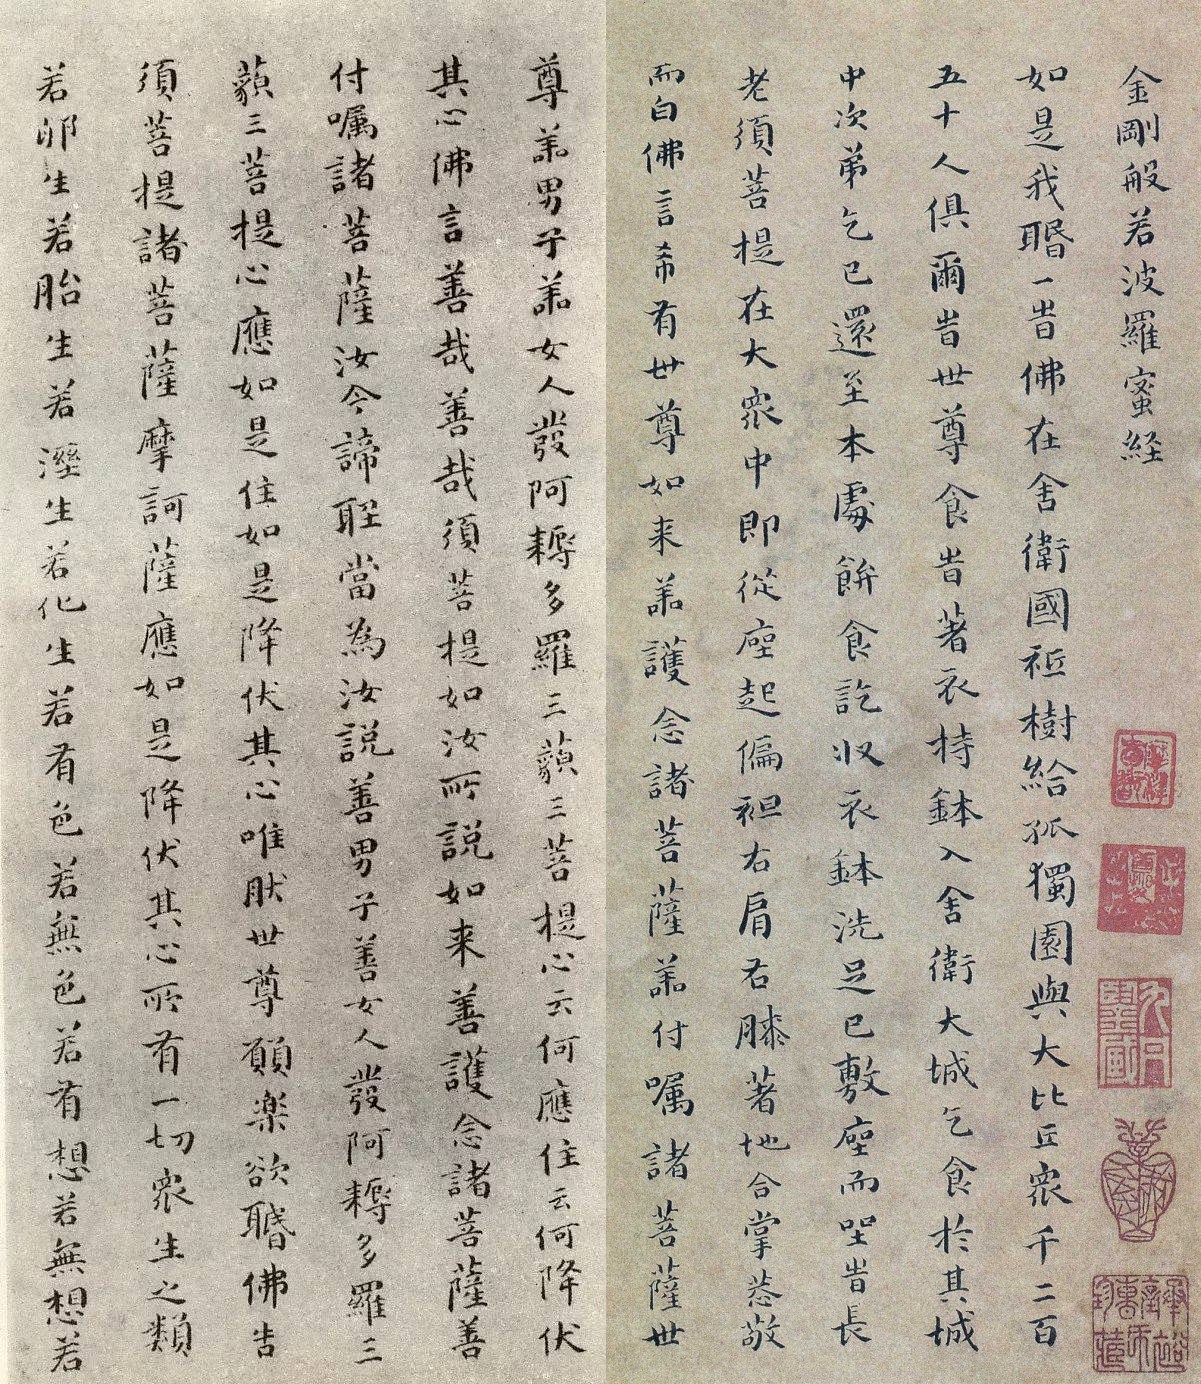 金剛般若波羅蜜経
如是我聞一旹佛在舍衛國祇樹給孤獨園與大比丘眾千二百
五十人俱爾旹世尊食旹著衣持鉢入舍衛大城乞食於其城
中次弟乞已還至本處飯食訖収衣鉢洗足已敷座而坐旹長
老須菩提在大眾中即從座起偏袒右肩右膝著地合掌恭敬
而白佛言希有世尊如来善護念諸菩薩善付嘱諸菩薩世
尊善男子善女人發阿耨多羅三藐三菩提心云何應住云何降伏
其心佛言善哉善哉須菩提如汝所説如来善護念諸菩薩善
付嘱諸菩薩汝今諦聴當為汝説善男子善女人發阿耨多羅三
藐三菩提心應如是住如是降伏其心唯肰世尊願楽欲聞佛告
須菩提諸菩薩摩訶薩應如是降伏其心所有一切眾生之類
若卵生若胎生若溼生若化生若有色若無色若有想若無想若